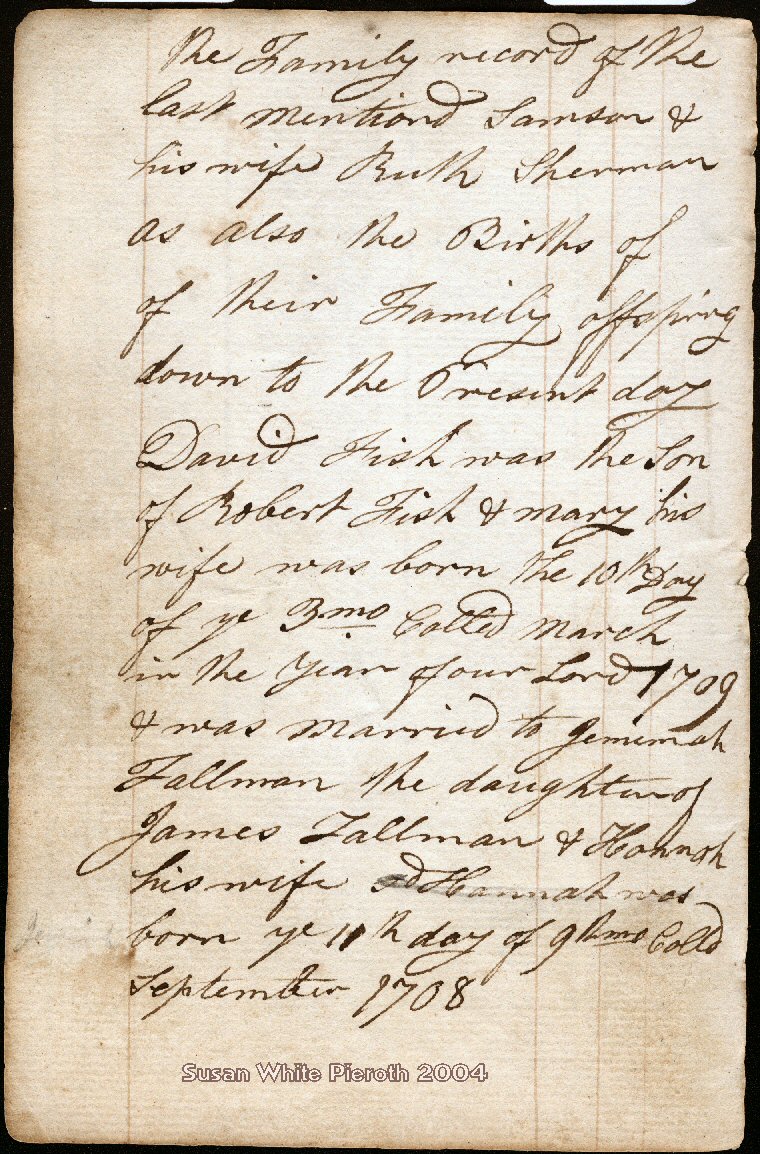 the Family record of the
last mentiond Samson &
his wife Ruth Sherman
as also the Births of
of their Family offspring
down to the Present day
David Fish was the Son
of Robert Fish & mary his
wife was born the 10th Day
of ye 3mo Called March
in the Year of our Lord 1709
& was married to Jemimah
Tallman the daughter of
James Tallman & Hannah
his wife sd Hannah was
born ye 11th day of 9thmo Calld
September 1708
Susan White Pieroth 2004